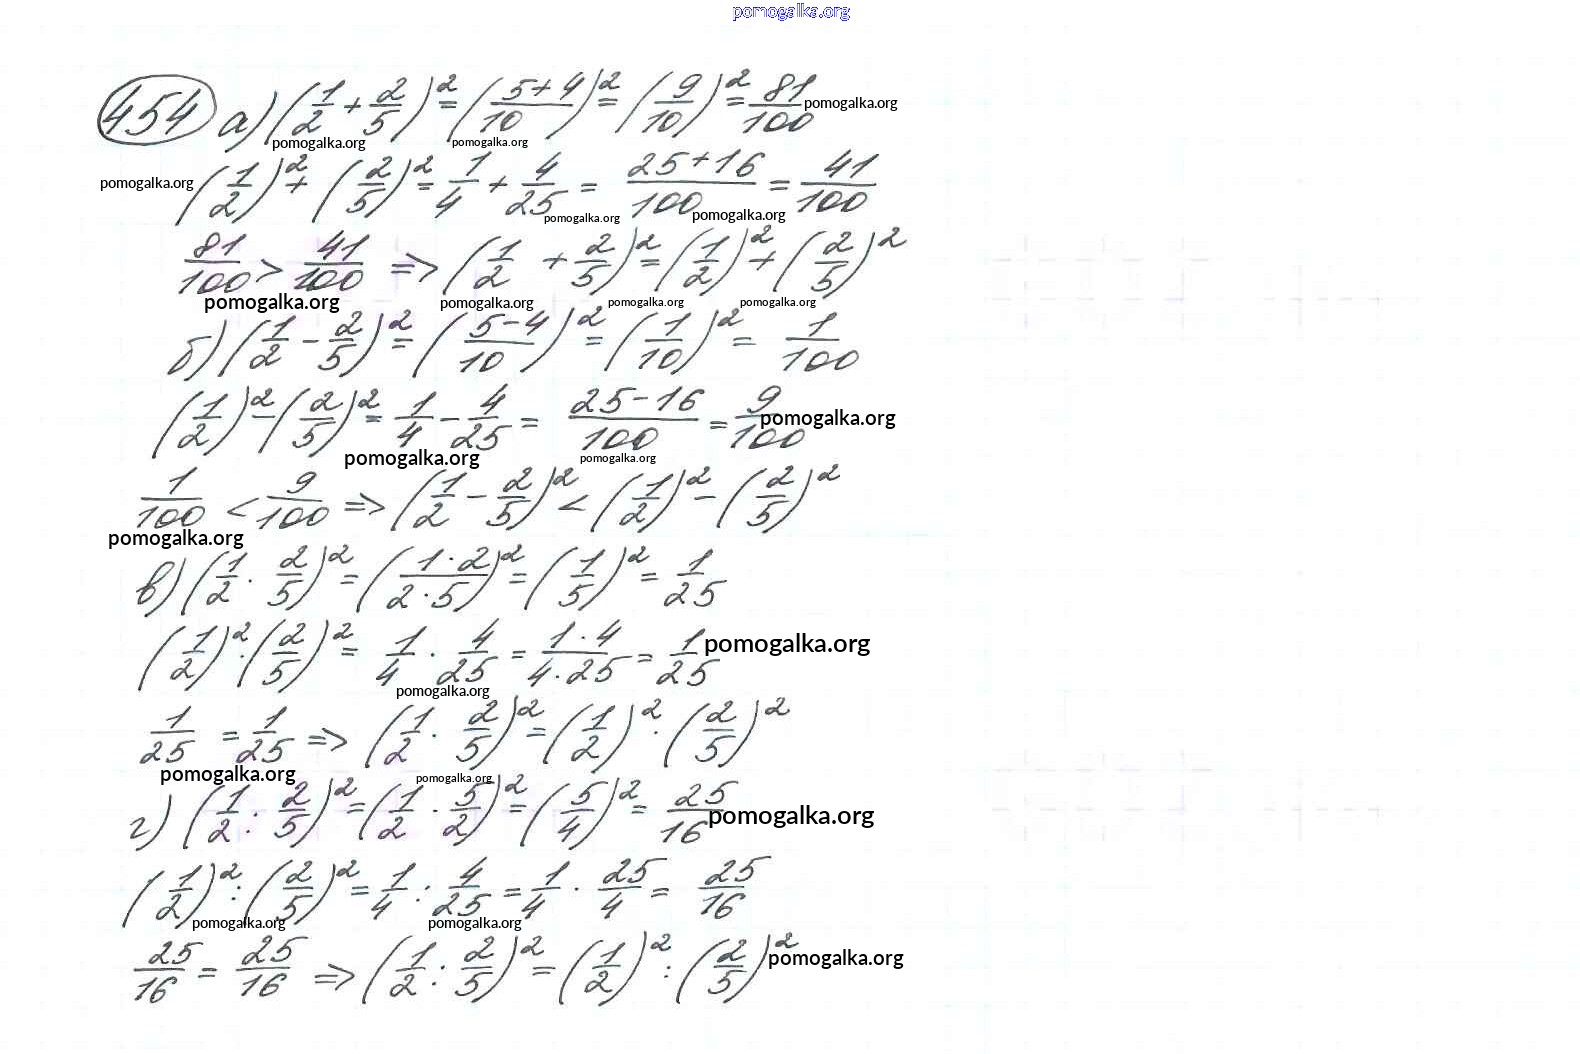 pomogalka.org
454 а) (1/2 + 2/5)² = (5+4/10)² = (9/10)² = 81/100 pomogalka.org
pomogalka.org pomogalka.org
pomogalka.org (1/2)² + (2/5)² = 1/4 + 4/25 = 25+16/100 = 41/100
pomogalka.org pomogalka.org
81/100 > 41/100 => (1/2 + 2/5)² = (1/2)² + (2/5)²
pomogalka.org pomogalka.org pomogalka.org pomogalka.org
б) (1/2 - 2/5)² = (5-4/10)² = (1/10)² = 1/100
(1/2)² - (2/5)² = 1/4 - 4/25 = 25-16/100 = 9/100 pomogalka.org
pomogalka.org pomogalka.org
1/100 < 9/100 => (1/2 - 2/5)² < (1/2)² - (2/5)²
pomogalka.org
в) (1/2 · 2/5)² = (1·2/2·5)² = (1/5)² = 1/25
(1/2)² · (2/5)² = 1/4 · 4/25 = 1·4/4·25 = 1/25 pomogalka.org
pomogalka.org
1/25 = 1/25 => (1/2 · 2/5)² = (1/2)² · (2/5)²
pomogalka.org pomogalka.org
г) (1/2 : 2/5)² = (1/2 · 5/2)² = (5/4)² = 25/16 pomogalka.org
(1/2)² : (2/5)² = 1/4 : 4/25 = 1/4 · 25/4 = 25/16
pomogalka.org pomogalka.org
25/16 = 25/16 => (1/2 : 2/5)² = (1/2)² : (2/5)² pomogalka.org